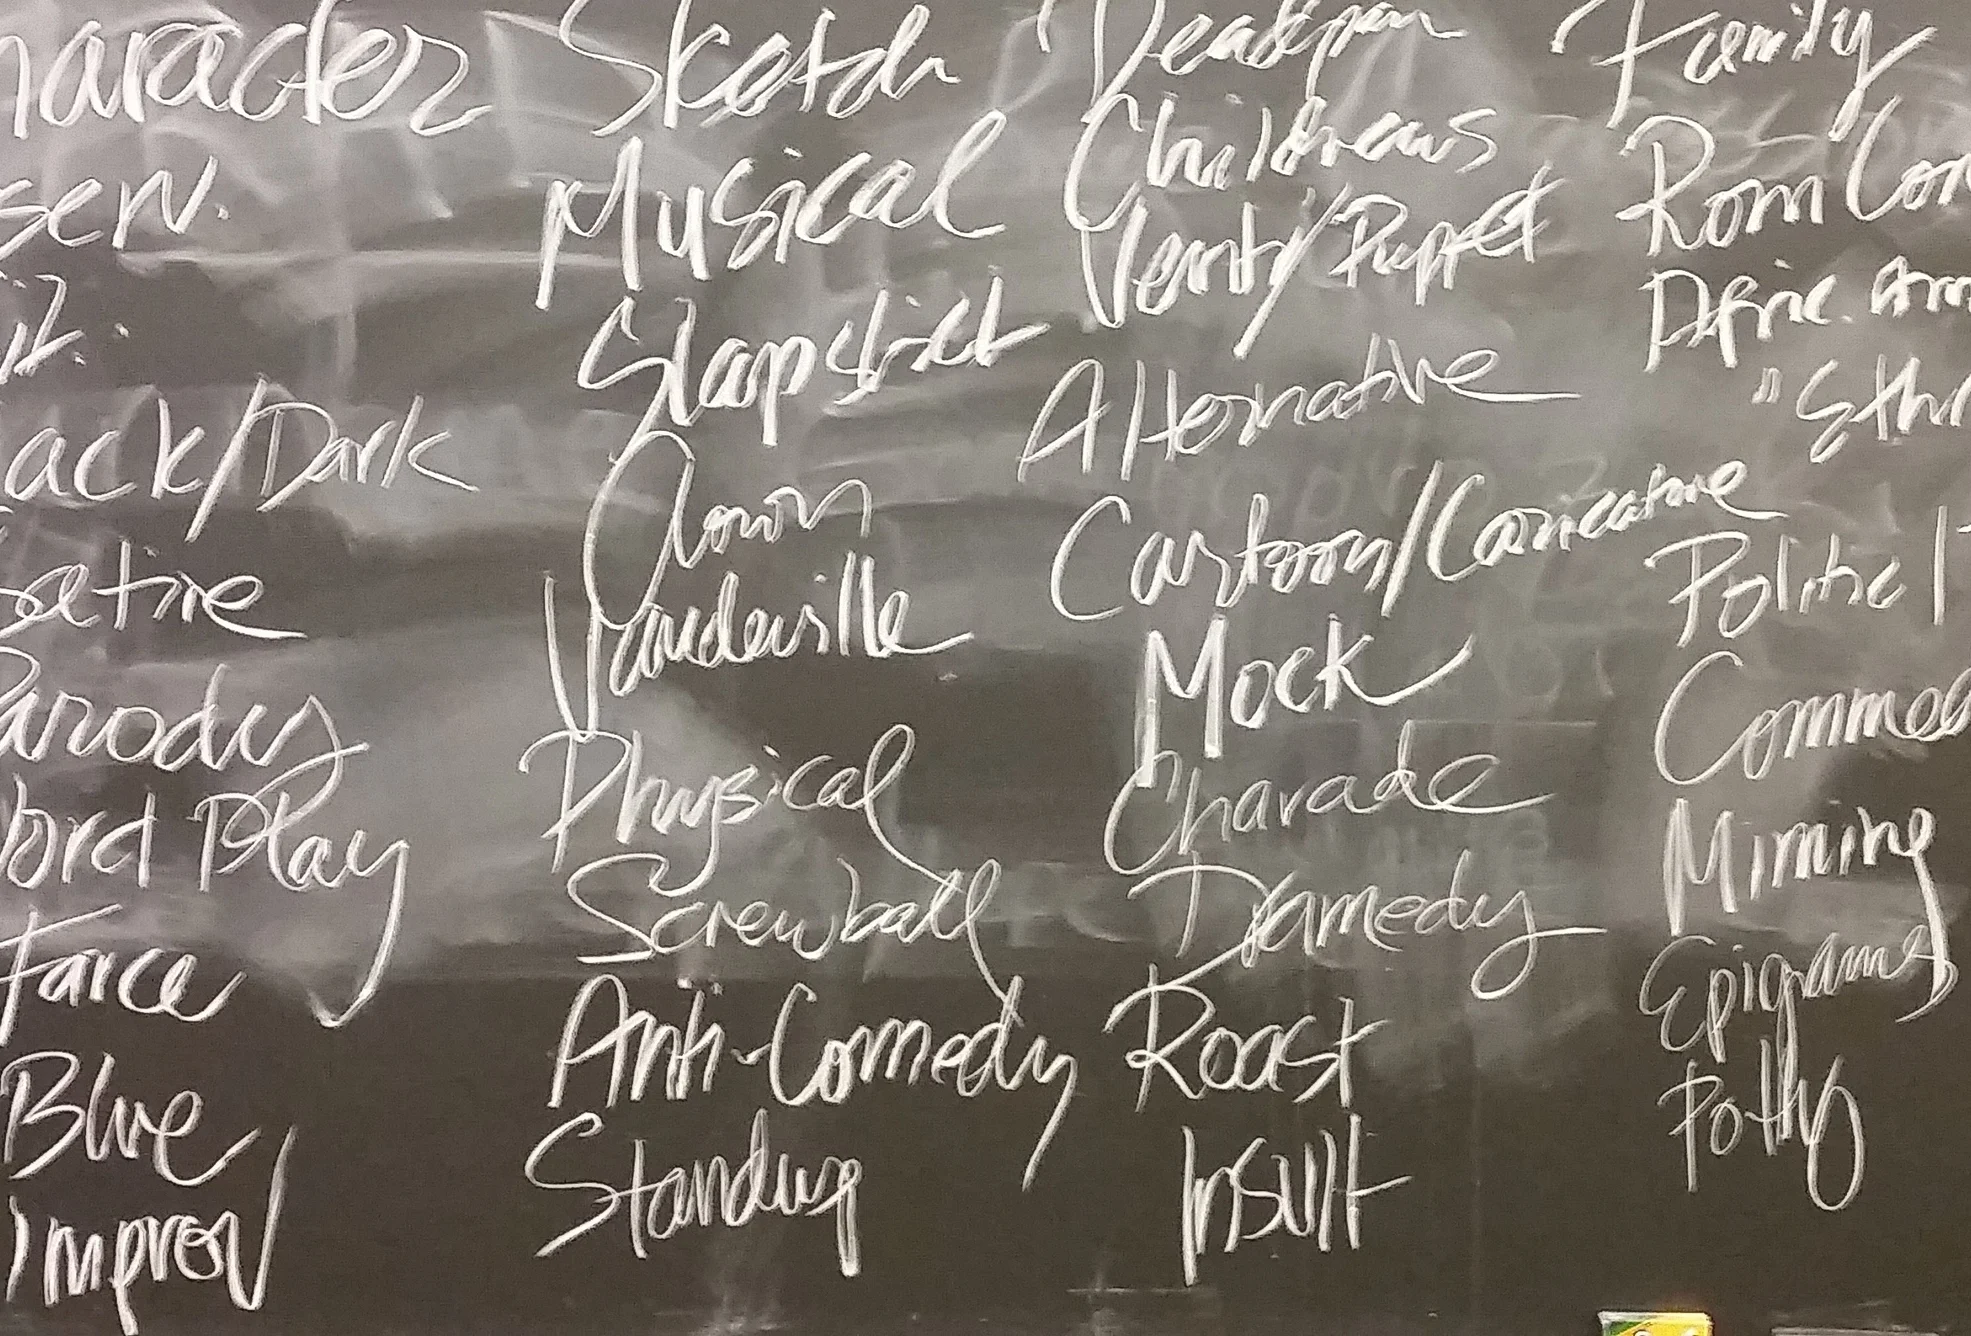 haracter
serv.
iz.
ack/Dark
atire
Parody
ord Play
Farce
Blue
Improv
Sketch
Musical
Slapstick
Clown
Vaudeville
Physical
Screwball
Anti-Comedy
Standup
Deadpan
Childrens
Vent/Puppet
Alternative
Cartoon/Caricature
Mock
Charade
Dramedy
Roast
Insult
Family
Rom Com
Afric. Am
"Ethn
Politicl
Commed
Miming
Epigrams
Potty